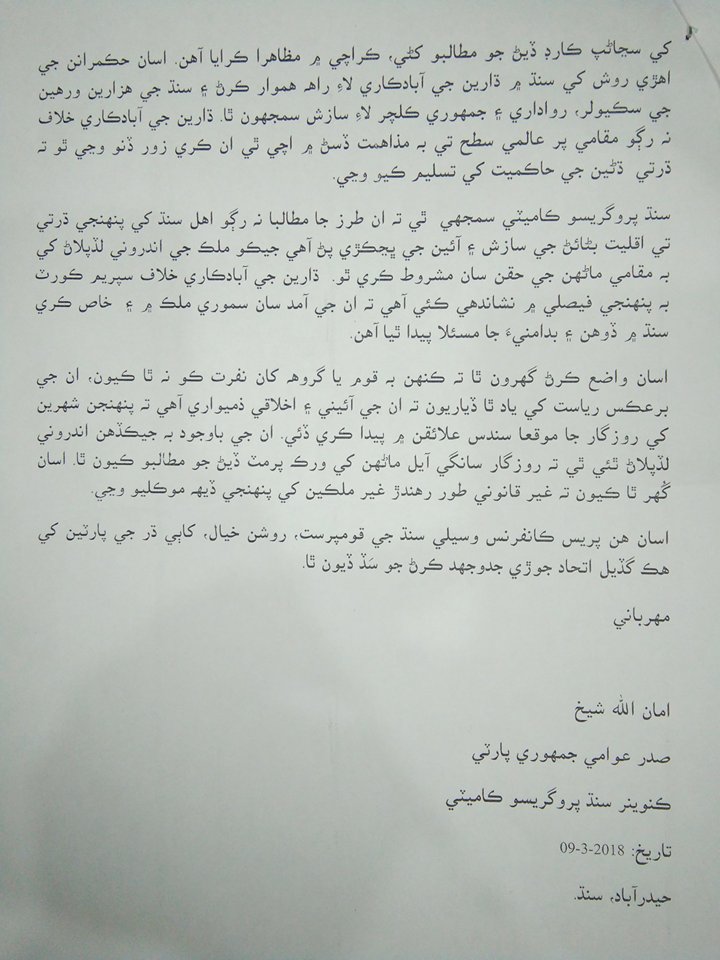 کي سڃاڻپ ڪارڊ ڏيڻ جو مطالبو کڻي، ڪراچي ۾ مظاهرا ڪرايا آهن. اسان حڪمرانن جي
اهڙي روش کي سنڌ ۾ ڌارين جي آبادڪاري لاءِ راهه هموار ڪرڻ ۽ سنڌ جي هزارين ورهين
جي سڪيولر، رواداري ۽ جمهوري ڪلچر لاءِ سازش سمجهون ٿا. ڌارين جي آبادڪاري خلاف
نه رڳو مقامي پر عالمي سطح تي به مذاهمت ڏسڻ ۾ اچي ٿي ان ڪري زور ڏنو وڃي ٿو ته
ڌرتي ڌڻين جي حاڪميت کي تسليم ڪيو وڃي.
سنڌ پروگريسو ڪاميٽي سمجهي ٿي ته ان طرز جا مطالبا نه رڳو اهل سنڌ کي پنهنجي ڌرتي
تي اقليت بڻائڻ جي سازش ۽ آئين جي ڀڃڪڙي پڻ آهي جيڪو ملڪ جي اندروني لڏپلاڻ کي
به مقامي ماڻهن جي حقن سان مشروط ڪري ٿو. ڌارين جي آبادڪاري خلاف سپريم ڪورٽ
به پنهنجي فيصلي ۾ نشاندهي ڪئي آهي ته ان جي آمد سان سموري ملڪ ۾ ۽ خاص ڪري
سنڌ ۾ ڏوهن ۽ بدامنيءَ جا مسئلا پيدا ٿيا آهن.
اسان واضع ڪرڻ گهرون ٿا ته ڪنهن به قوم يا گروهه کان نفرت ڪو نه ٿا ڪيون، ان جي
برعڪس رياست کي ياد ٿا ڏياريون ته ان جي آئيني ۽ اخلاقي ذميواري آهي ته پنهنجن شهرين
کي روزگار جا موقعا سندس علائقن ۾ پيدا ڪري ڏئي. ان جي باوجود به جيڪڏهن اندروني
لڏپلاڻ ٿئي ٿي ته روزگار سانگي آيل ماڻهن کي ورڪ پرمٽ ڏيڻ جو مطالبو ڪيون ٿا. اسان
گُهر ٿا ڪيون ته غير قانوني طور رهندڙ غير ملڪين کي پنهنجي ڏيهه موڪليو وڃي.
اسان هن پريس ڪانفرنس وسيلي سنڌ جي قومپرست، روشن خيال، کاٻي ڌر جي پارٽين کي
هڪ گڏيل اتحاد جوڙي جدوجهد ڪرڻ جو سَڏ ڏيون ٿا.
مهرباني
امان الله شيخ
صدر عوامي جمهوري پارٽي
ڪنوينر سنڌ پروگريسو ڪاميٽي
تاريخ: 2018-3-09
حيدرآباد، سنڌ.